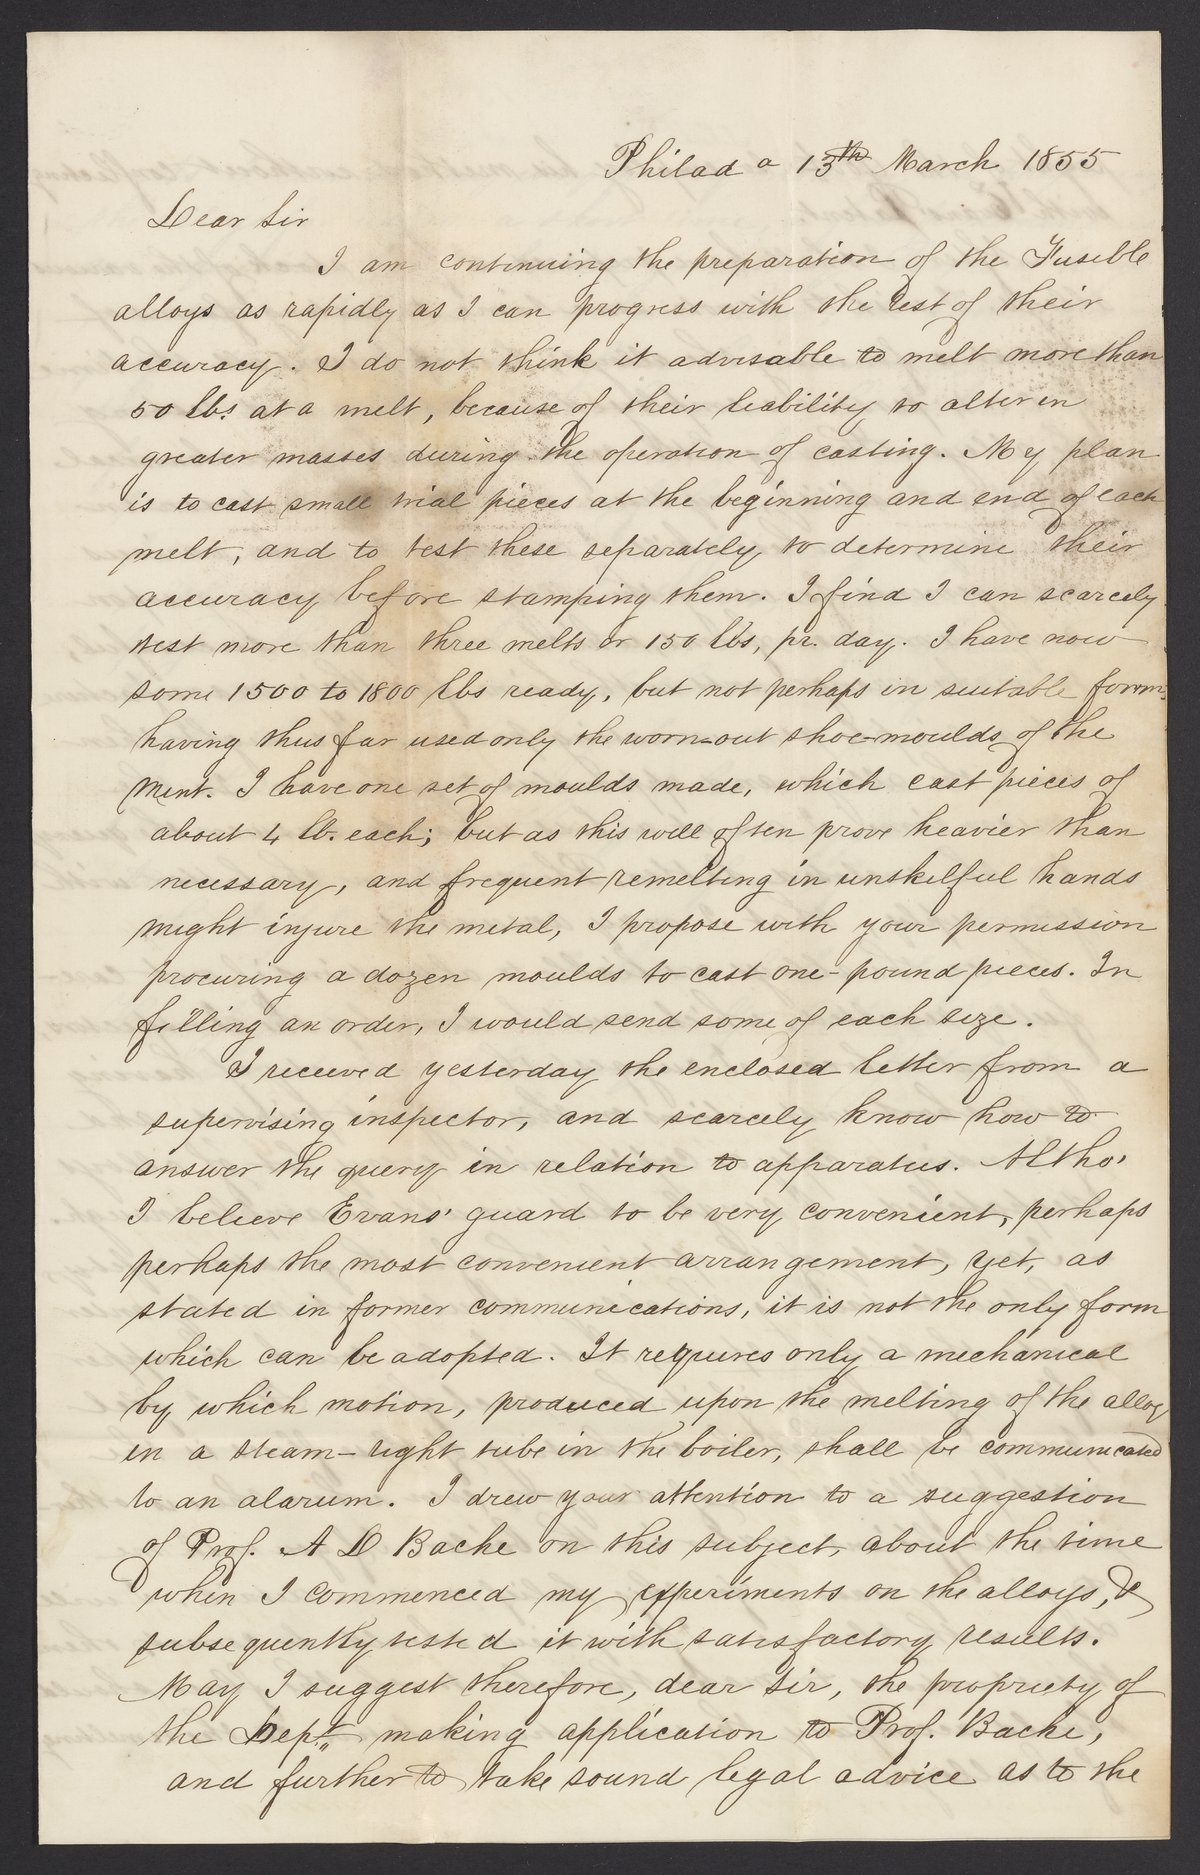 Philad a 13th March 1855
Dear Sir
I am continuing the preparation of the Fusible
alloys as rapidly as I can progress with the test of their
accuracy. I do not think it advisable to melt more than
50 lbs at a melt, because of their liability to alter in
greater masses during the operation of casting. My plan
is to cast small trial pieces at the beginning and end of each
melt, and to test these separately to determine their
accuracy before stamping them. I find I can scarcely
test more than three melts or 150 lbs, pr. day. I have now
some 1500 to 1800 lbs ready, but not perhaps in suitable form,
having thus far used only the worn-out shoe-moulds of the
Mint. I have one set of moulds made, which cast pieces of
about 4 lb. each; but as this will often prove heavier than
necessary, and frequent remelting in unskilful hands
might injure the metal, I propose with your permission
procuring a dozen moulds to cast one-pound pieces. In
filling an order, I would send some of each size.
I received yesterday the enclosed letter from a
supervising inspector, and scarcely know how to
answer the query in relation to apparatus. Altho'
I believe Evans' guard to be very convenient, perhaps
perhaps the most convenient arrangement, yet, as
stated in former communications, it is not the only form
which can be adopted. It requires only a mechanical
by which motion, produced upon the melting of the alloy
in a steam-tight tube in the boiler, shall be communicated
to an alarum. I drew your attention to a suggestion
of Prof. A D Bache on this subject, about the time
when I commenced my experiments on the alloys, &
subsequently tested it with satisfactory results.
May I suggest therefore, dear Sir, the propriety of
the Dept. making application to Prof. Bache,
and further to take sound legal advice as to the